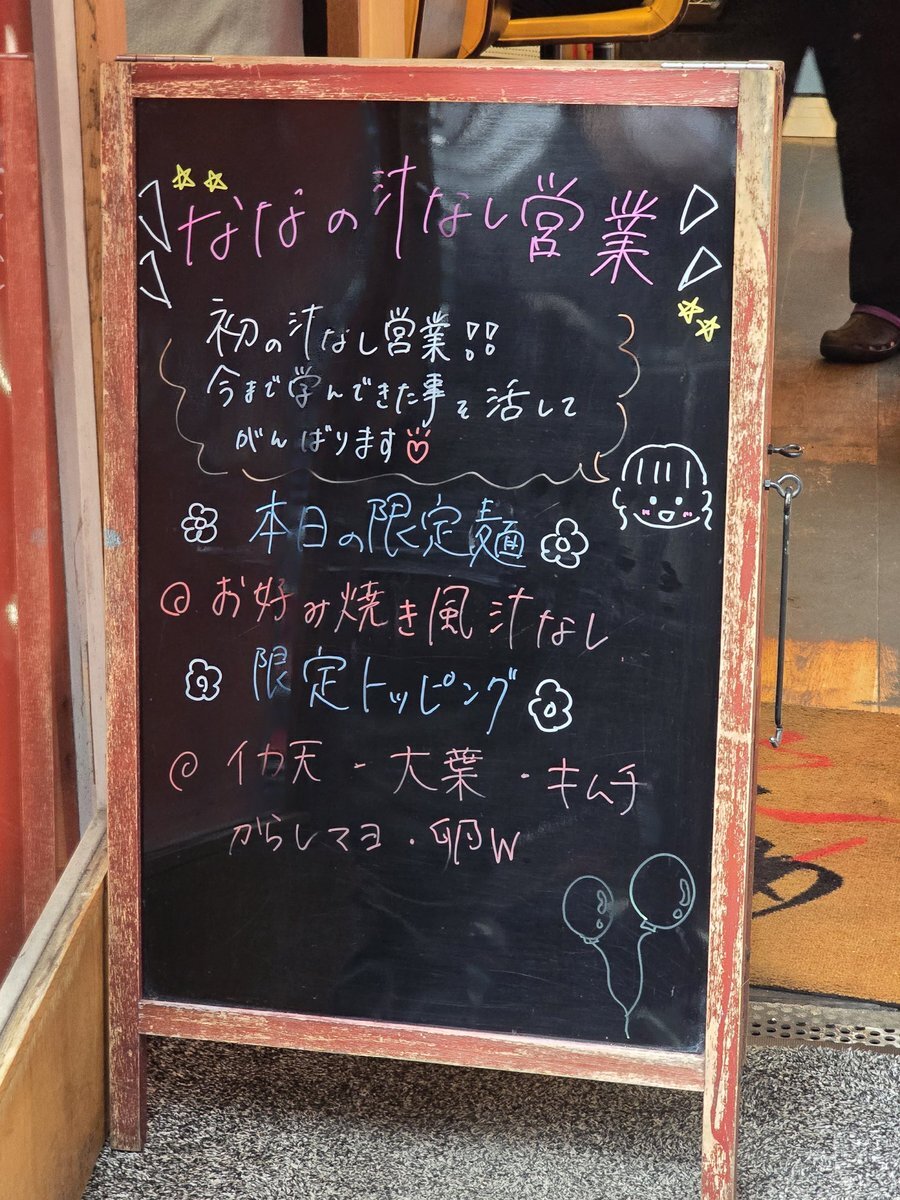 ななの汁なし営業
初の汁なし営業!!
今まで学んできた事を活して
がんばります♡
本日の限定麺
@お好み焼き風汁なし
限定トッピング
@イカ天・大葉・キムチ
からしマヨ・卵W